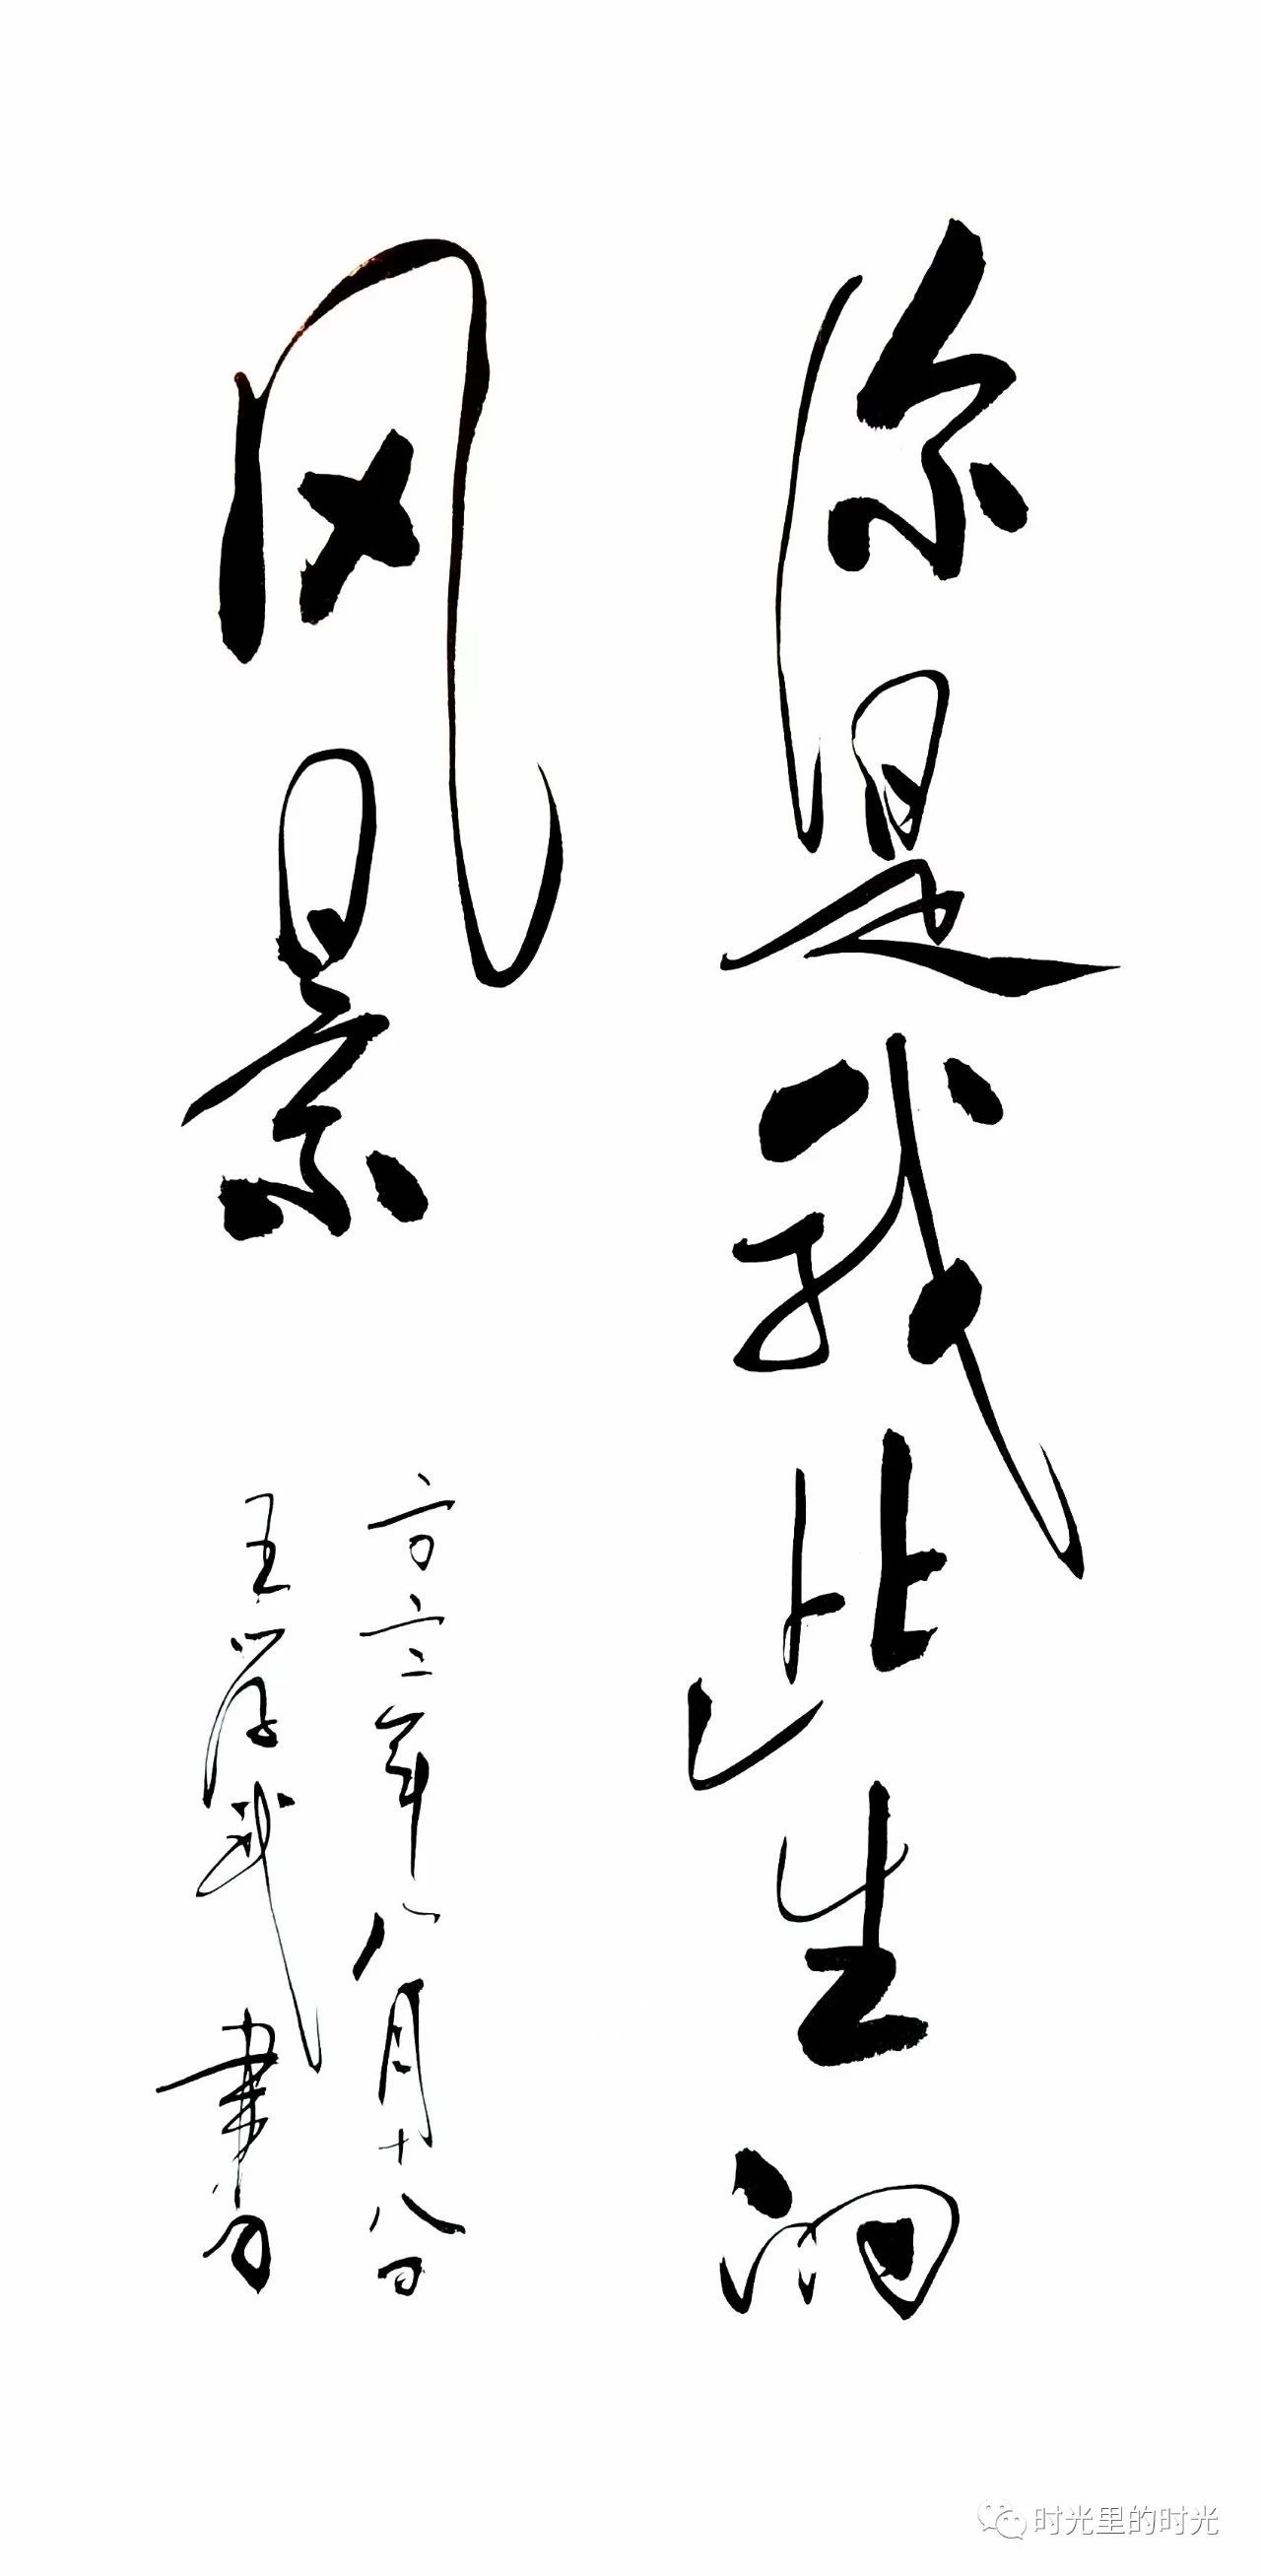 你是我此生的
风景
二〇二二年八月十八日
王学武書
时光里的时光